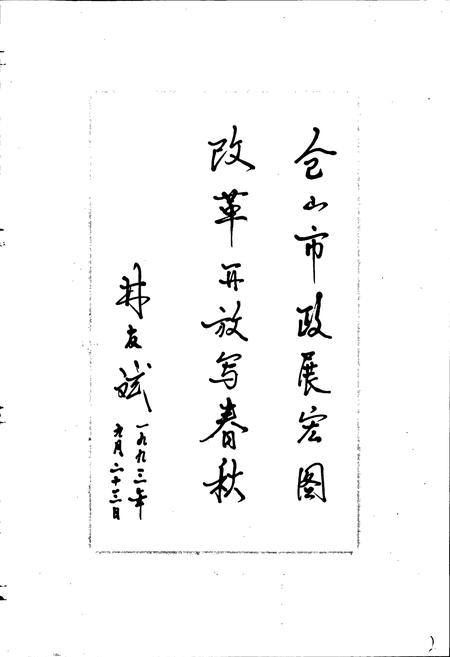 仓山市政展宏图
改革开放写春秋
林友斌
一九九三年
九月二十三日